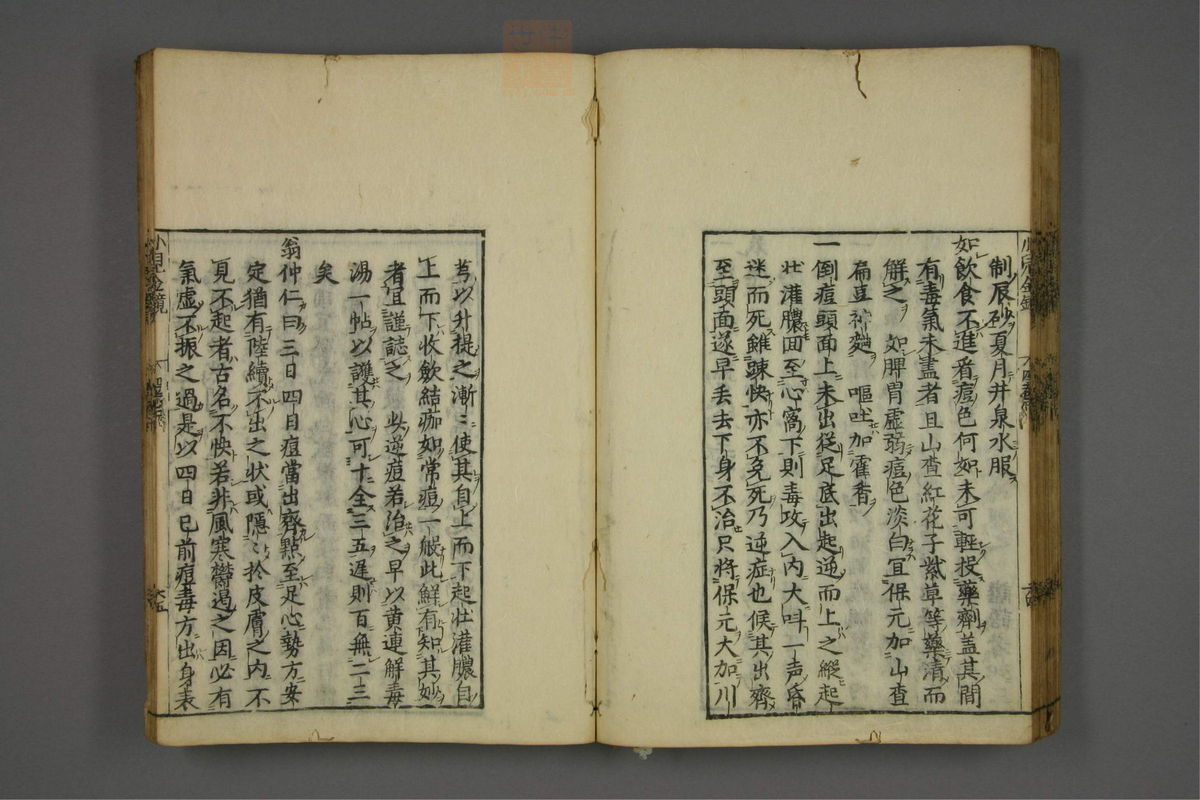 制辰砂夏月井泉水服
如飲食不進看痘色何如未可輕投藥劑蓋其間
有毒氣未盡者且山查紅花子紫草等藥清而
解之　如脾胃虛弱痘色淡白宜保元加山查
扁豆神麯　嘔吐加霍香
一倒痘頭面上未出從足底出起逆而上之縱起
壯灌膿回至心窩下則毒攻入內大叫一声昏
迷而死雖踈快亦不免死乃逆症也候其出齊
至頭面遂早丢去下身不治只將保元大加川
芎以升提之漸〻使其自上而下起壯灌膿自
上而下收斂結痂如常痘一般此鮮有知其妙
者宜謹誌之　此逆痘若治之早以黄連解毒
湯一帖以護其心可十全三五遲則百無二三
矣
翁仲仁曰三日四日痘當出齊點至足心勢方安
定猶有陸續不出之状或隱〻於皮膚之內不
見不起者古名不快若非風寒鬱遏之因必有
氣虛不振之過是以四日已前痘毒方出身表
小兒金鏡